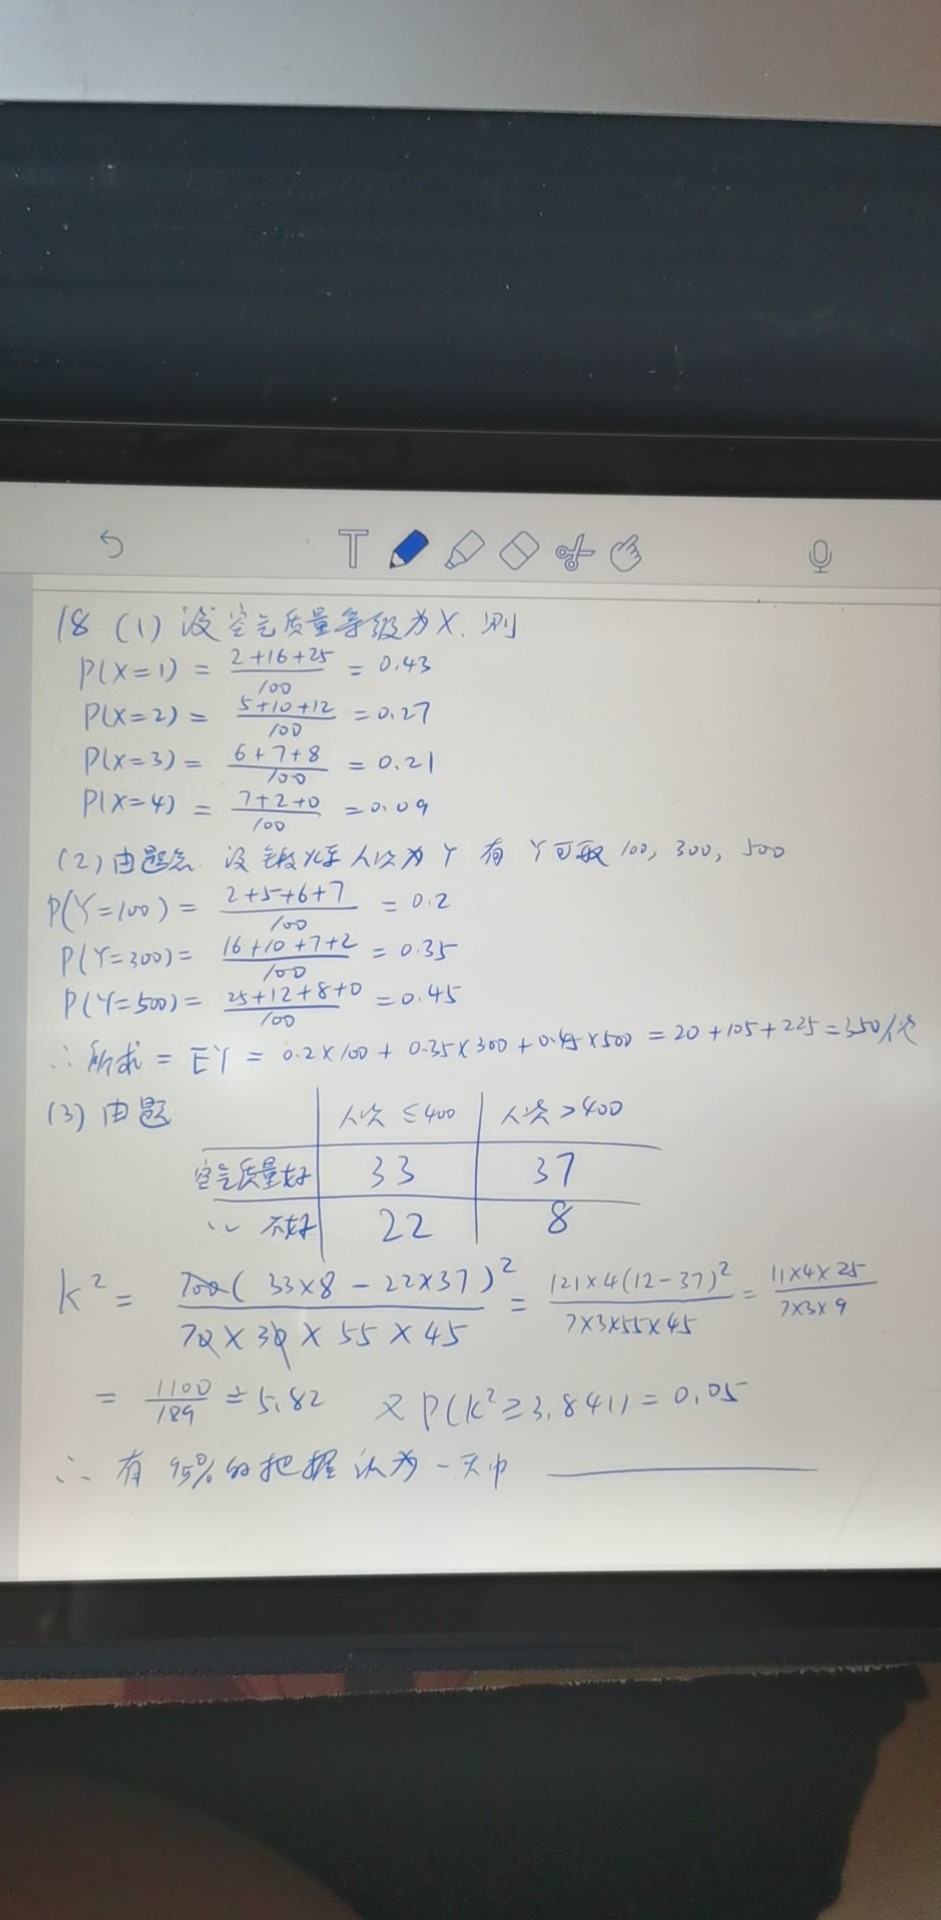 T
18 (1) 设空气质量等级为X, 则
P(X=1) = (2+16+25)/100 = 0.43
P(X=2) = (5+10+12)/100 = 0.27
P(X=3) = (6+7+8)/100 = 0.21
P(X=4) = (7+2+0)/100 = 0.09
(2) 由题意 设锻炼人次为Y 有 Y可取 100, 300, 500
P(Y=100) = (2+5+6+7)/100 = 0.2
P(Y=300) = (16+10+7+2)/100 = 0.35
P(Y=500) = (25+12+8+0)/100 = 0.45
∴ 所求 = EY = 0.2×100 + 0.35×300 + 0.45×500 = 20+105+225=350
(3) 由题
人次 ≤400 人次 >400
空气质量好 33 37
〃 不好 22 8
k² = 100(33×8-22×37)²/(70×30×55×45) = 121×4(12-37)²/(7×3×55×45) = 11×4×25/(7×3×9)
= 1100/189 ≐ 5.82 又 P(k²≥3.841) = 0.05
∴ 有 95% 的把握认为一天中